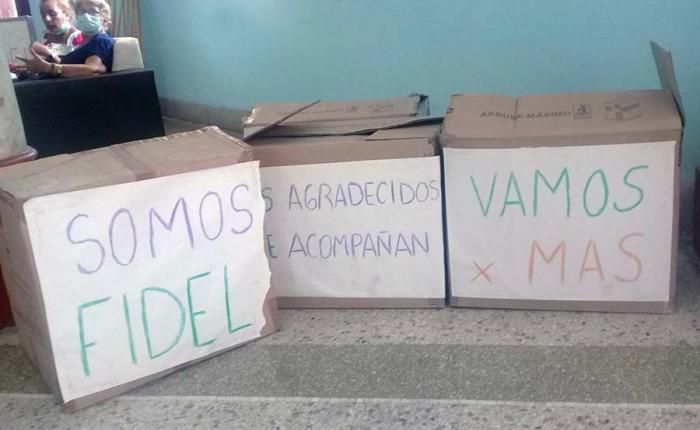 SOMOS
FIDEL
S AGRADECIDOS
E ACOMPAÑAN
ARRUME MÁXIMO 4
VAMOS
x MAS